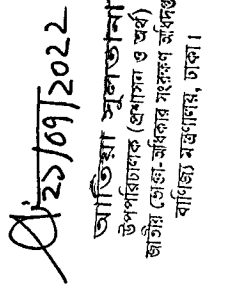 ২১/০৭/2022
আতিয়া সুলতানা
উপপরিচালক (প্রশাসন ও অর্থ)
জাতীয় ভোক্তা-অধিকার সংরক্ষণ অধিদপ্ত
বাণিজ্য মন্ত্রণালয়, ঢাকা।